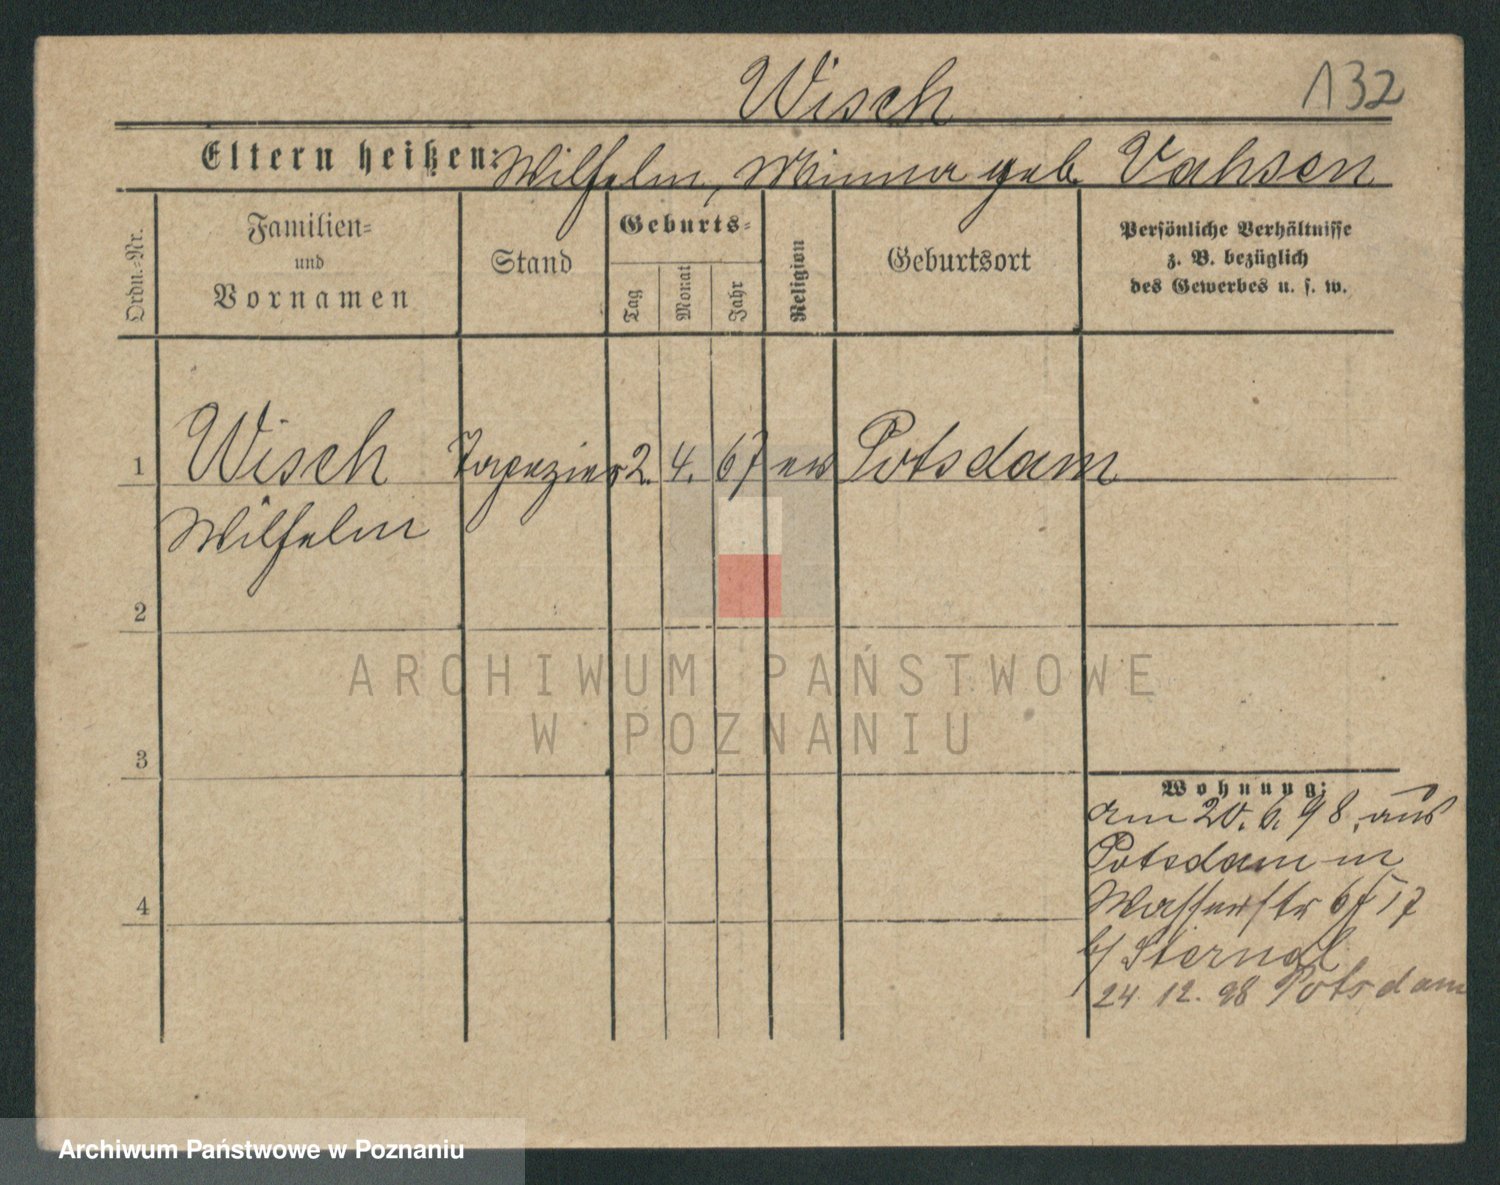 Wisch 132
Eltern heißen: Wilhelm, Minna geb. Vahsen
Ordn.-Nr.
Familien-
und
Vornamen
Stand
Geburts-
Tag
Monat
Jahr
Religion
Geburtsort
Persönliche Verhältnisse
z. B. bezüglich
des Gewerbes u. s. w.
1 Wisch Tapezier 2. 4. 67 ev Potsdam
Wilhelm
2
ARCHIWUM PAŃSTWOWE
W POZNANIU
3
Wohnung:
am 20. 6. 98, aus
Potsdam in
Wasserstr 17
b/
24 12. 98 Potsdam
4
Archiwum Państwowe w Poznaniu